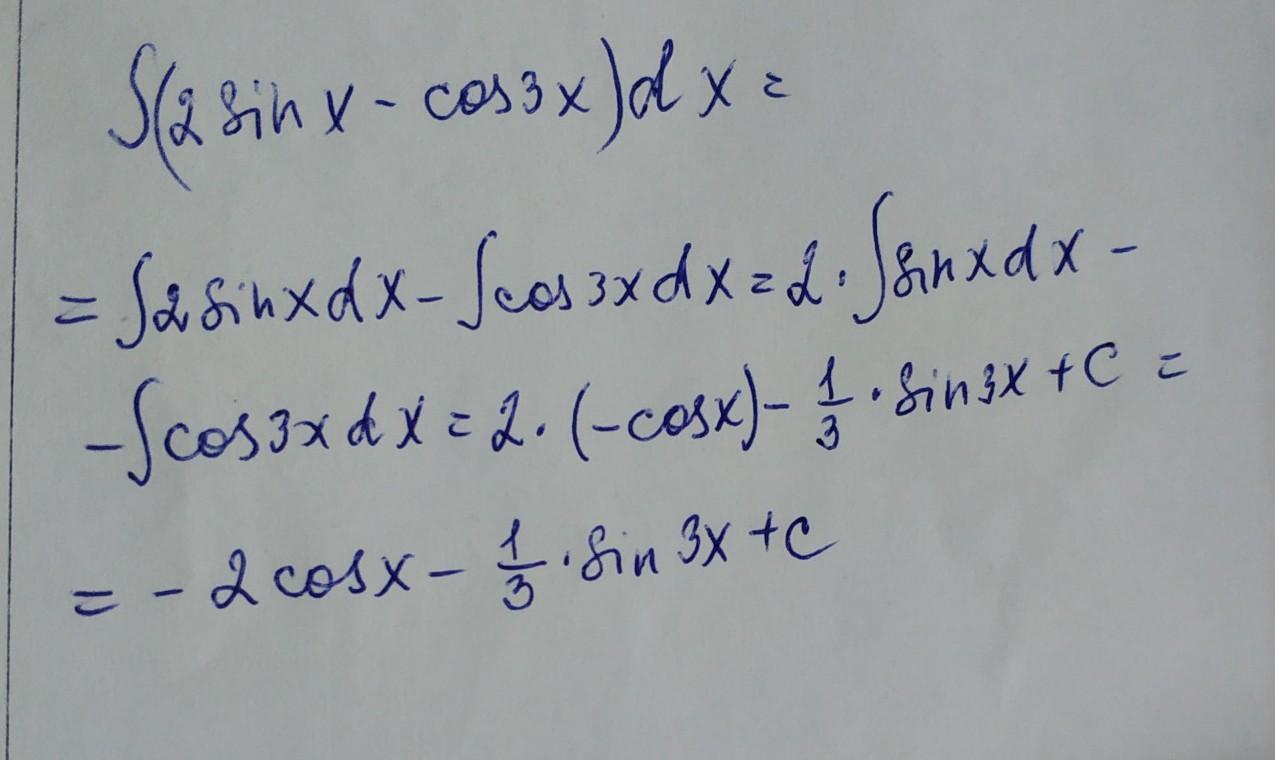 ∫(2 sin x - cos 3x) d x =
= ∫2 sin x d x - ∫cos 3x d x = 2 · ∫sin x d x -
- ∫cos 3x d x = 2 · (-cos x) - 1/3 · sin 3x + C =
= - 2 cos x - 1/3 · sin 3x + C